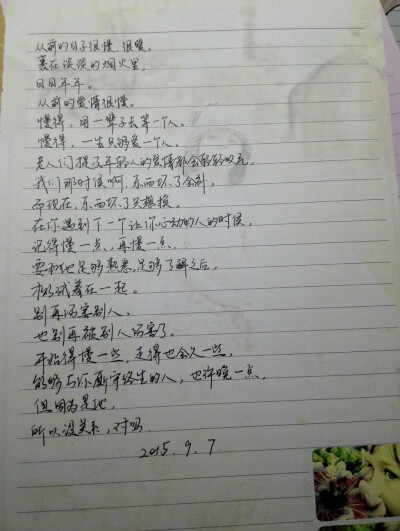 从前的日子很慢、很暖。
裹在淡淡的烟火里,
日日年年。
从前的爱情很慢。
慢得,用一辈子去等一个人。
慢得,一生只够爱一个人。
老人们提及年轻人的爱情都会轻轻叹气,
我们那时候啊,东西坏了会补,
而现在,东西坏了只想换。
在你遇到下一个让你心动的人的时候,
记得慢一点、再慢一点。
要和他足够熟悉,足够了解之后,
才试着在一起。
别再伤害别人,
也别再被别人伤害了。
开始得慢一些,走得也会久一些,
能够与你厮守终生的人,也许晚一点,
但因为是他,
所以没关系,对吗
2015.9.7